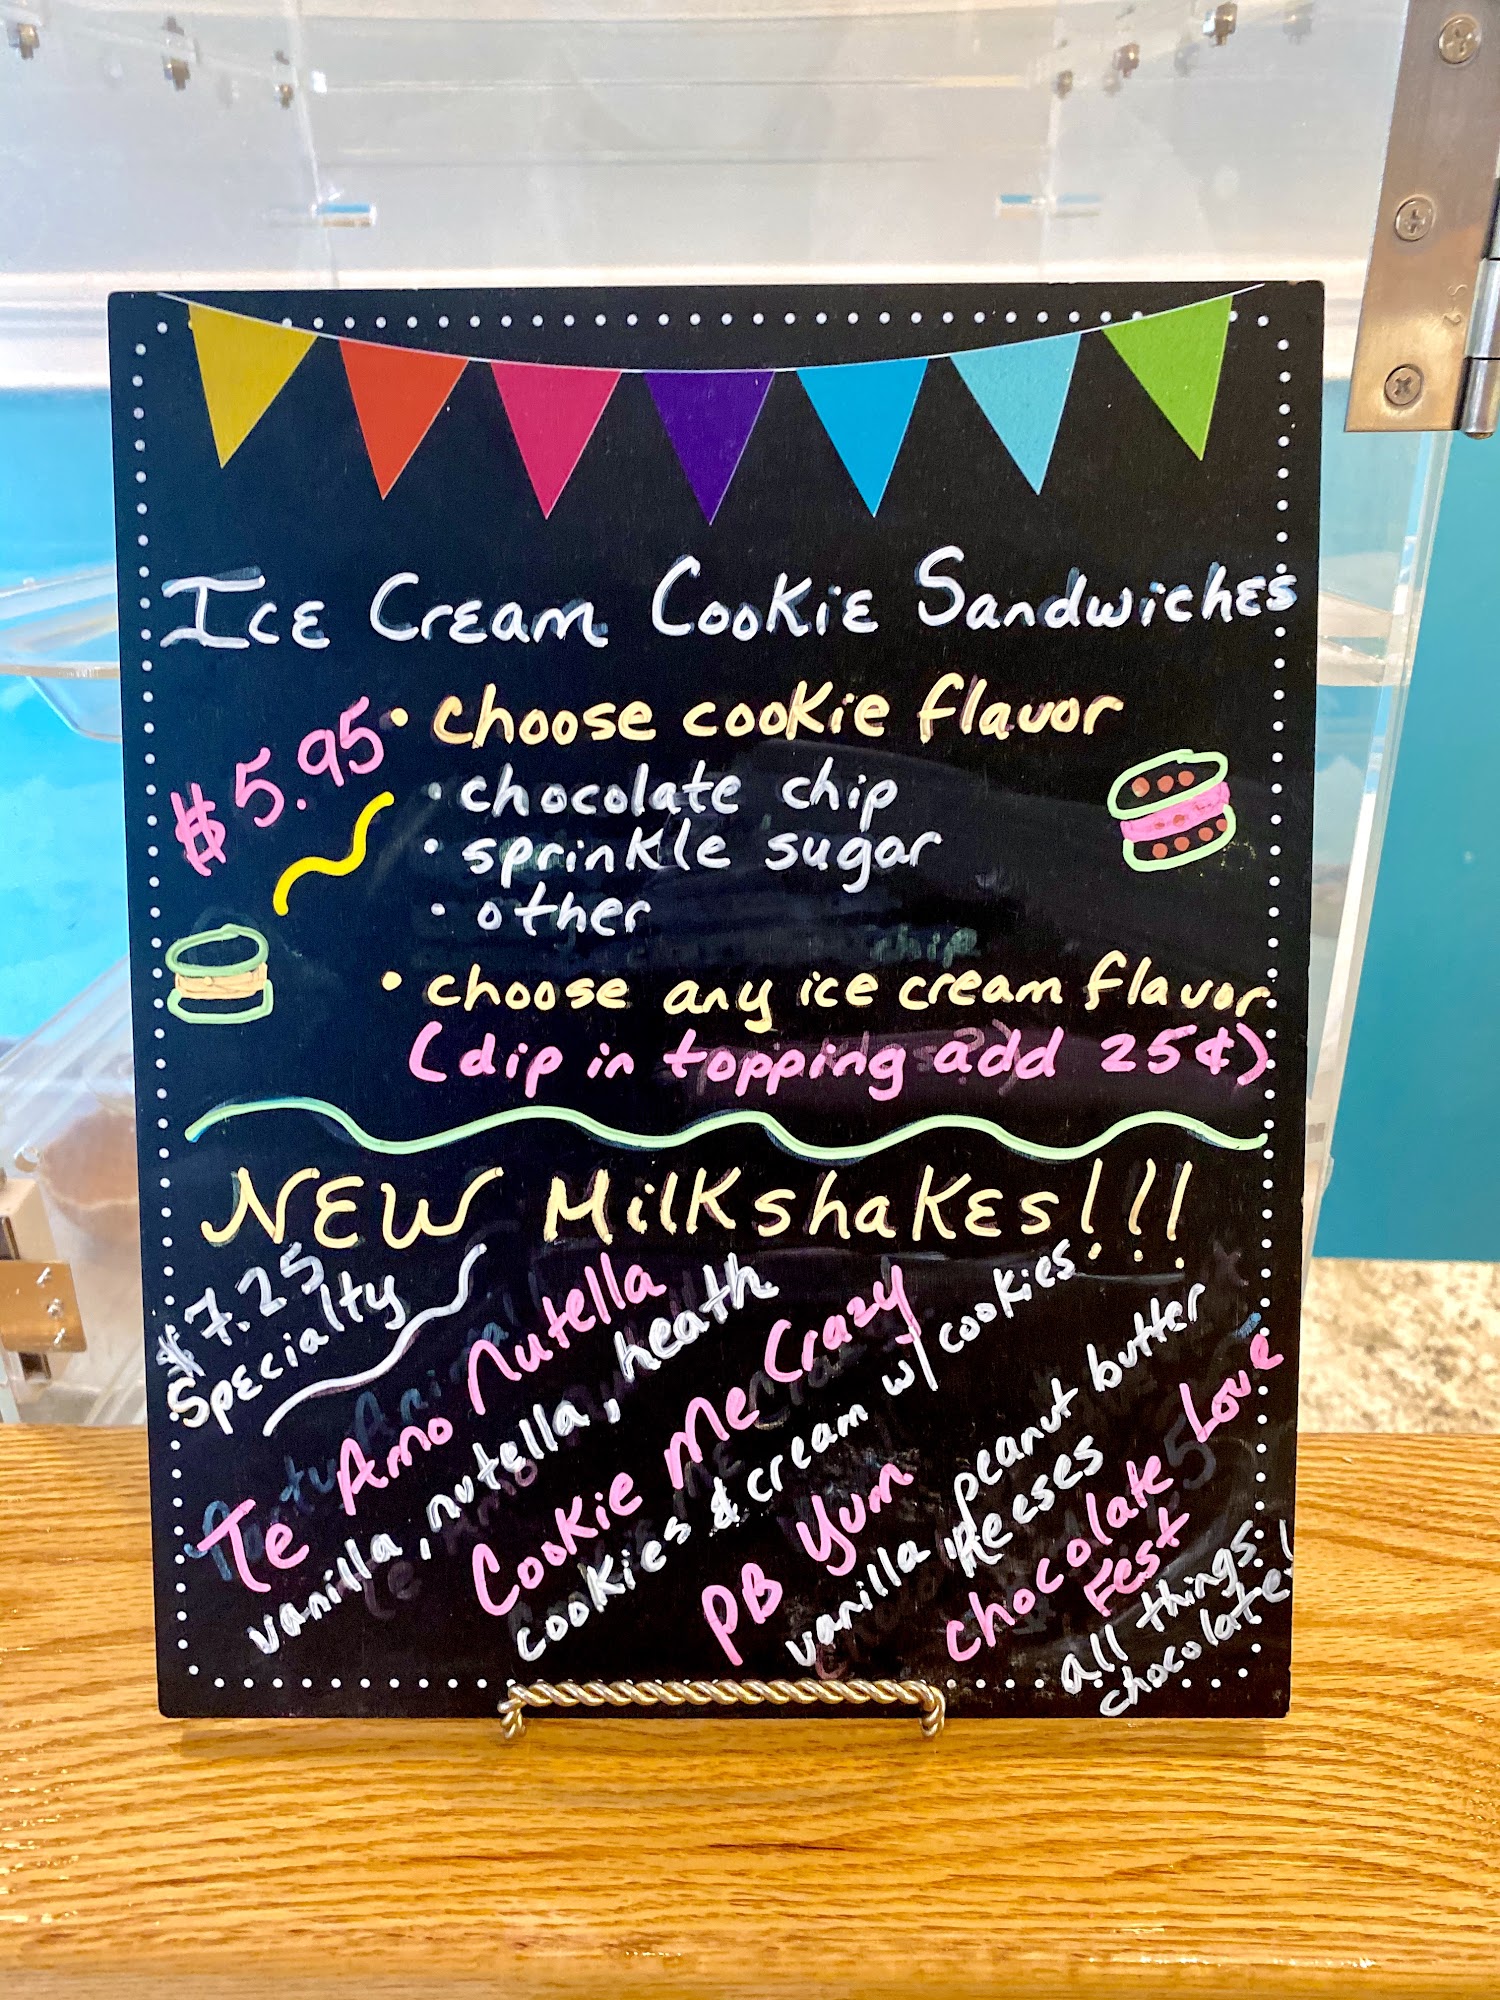 Ice Cream Cookie Sandwiches
$5.95
• choose cookie flavor
• chocolate chip
• sprinkle sugar
• other
• choose any ice cream flavor
(dip in topping add 25¢)
NEW Milkshakes!!!
$7.25
Specialty
Te Amo Nutella
vanilla, nutella, heath
Cookie Me Crazy
cookies & cream w/ cookies
PB Yum
vanilla, peanut butter
Reeses
Chocolate Love
Fest
all things
chocolate!